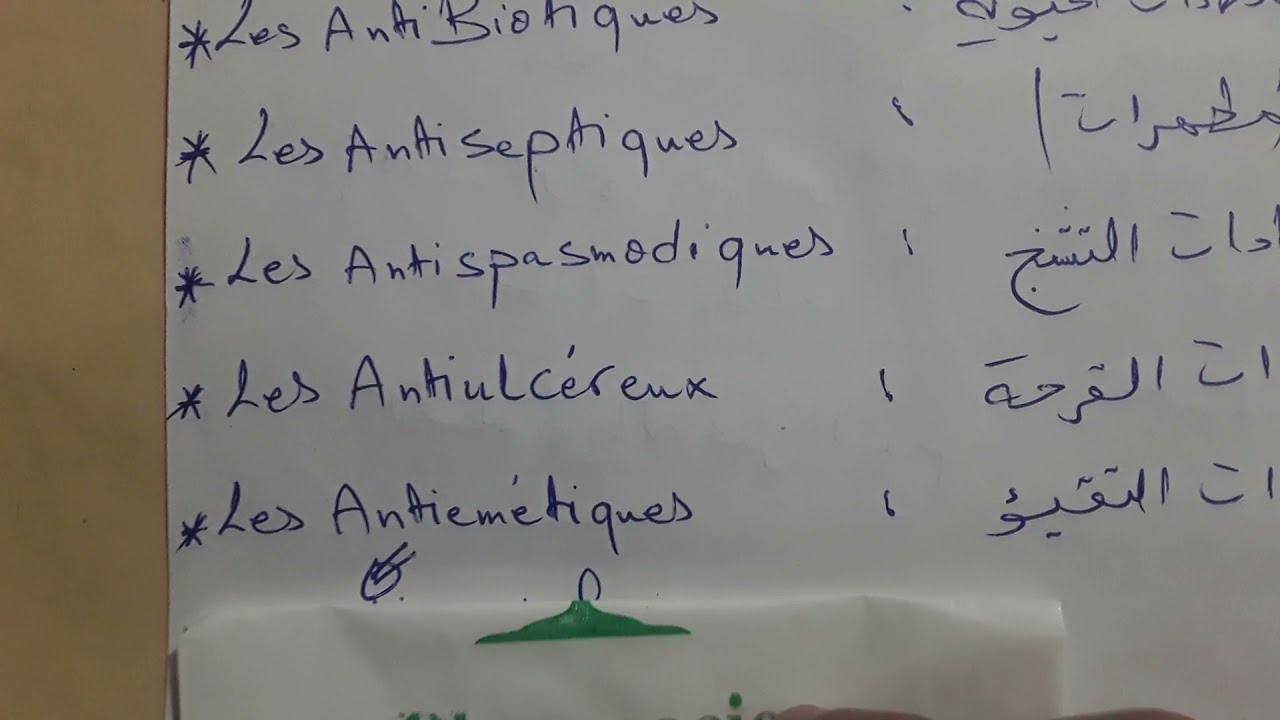 *Les AntiBiotiques :
* Les Antiseptiques : مطهرات /
* Les Antispasmodiques : ادات التشنج
* Les Antiulcéreux : ات القرحة
* Les Antiemétiques : ات التقيؤ